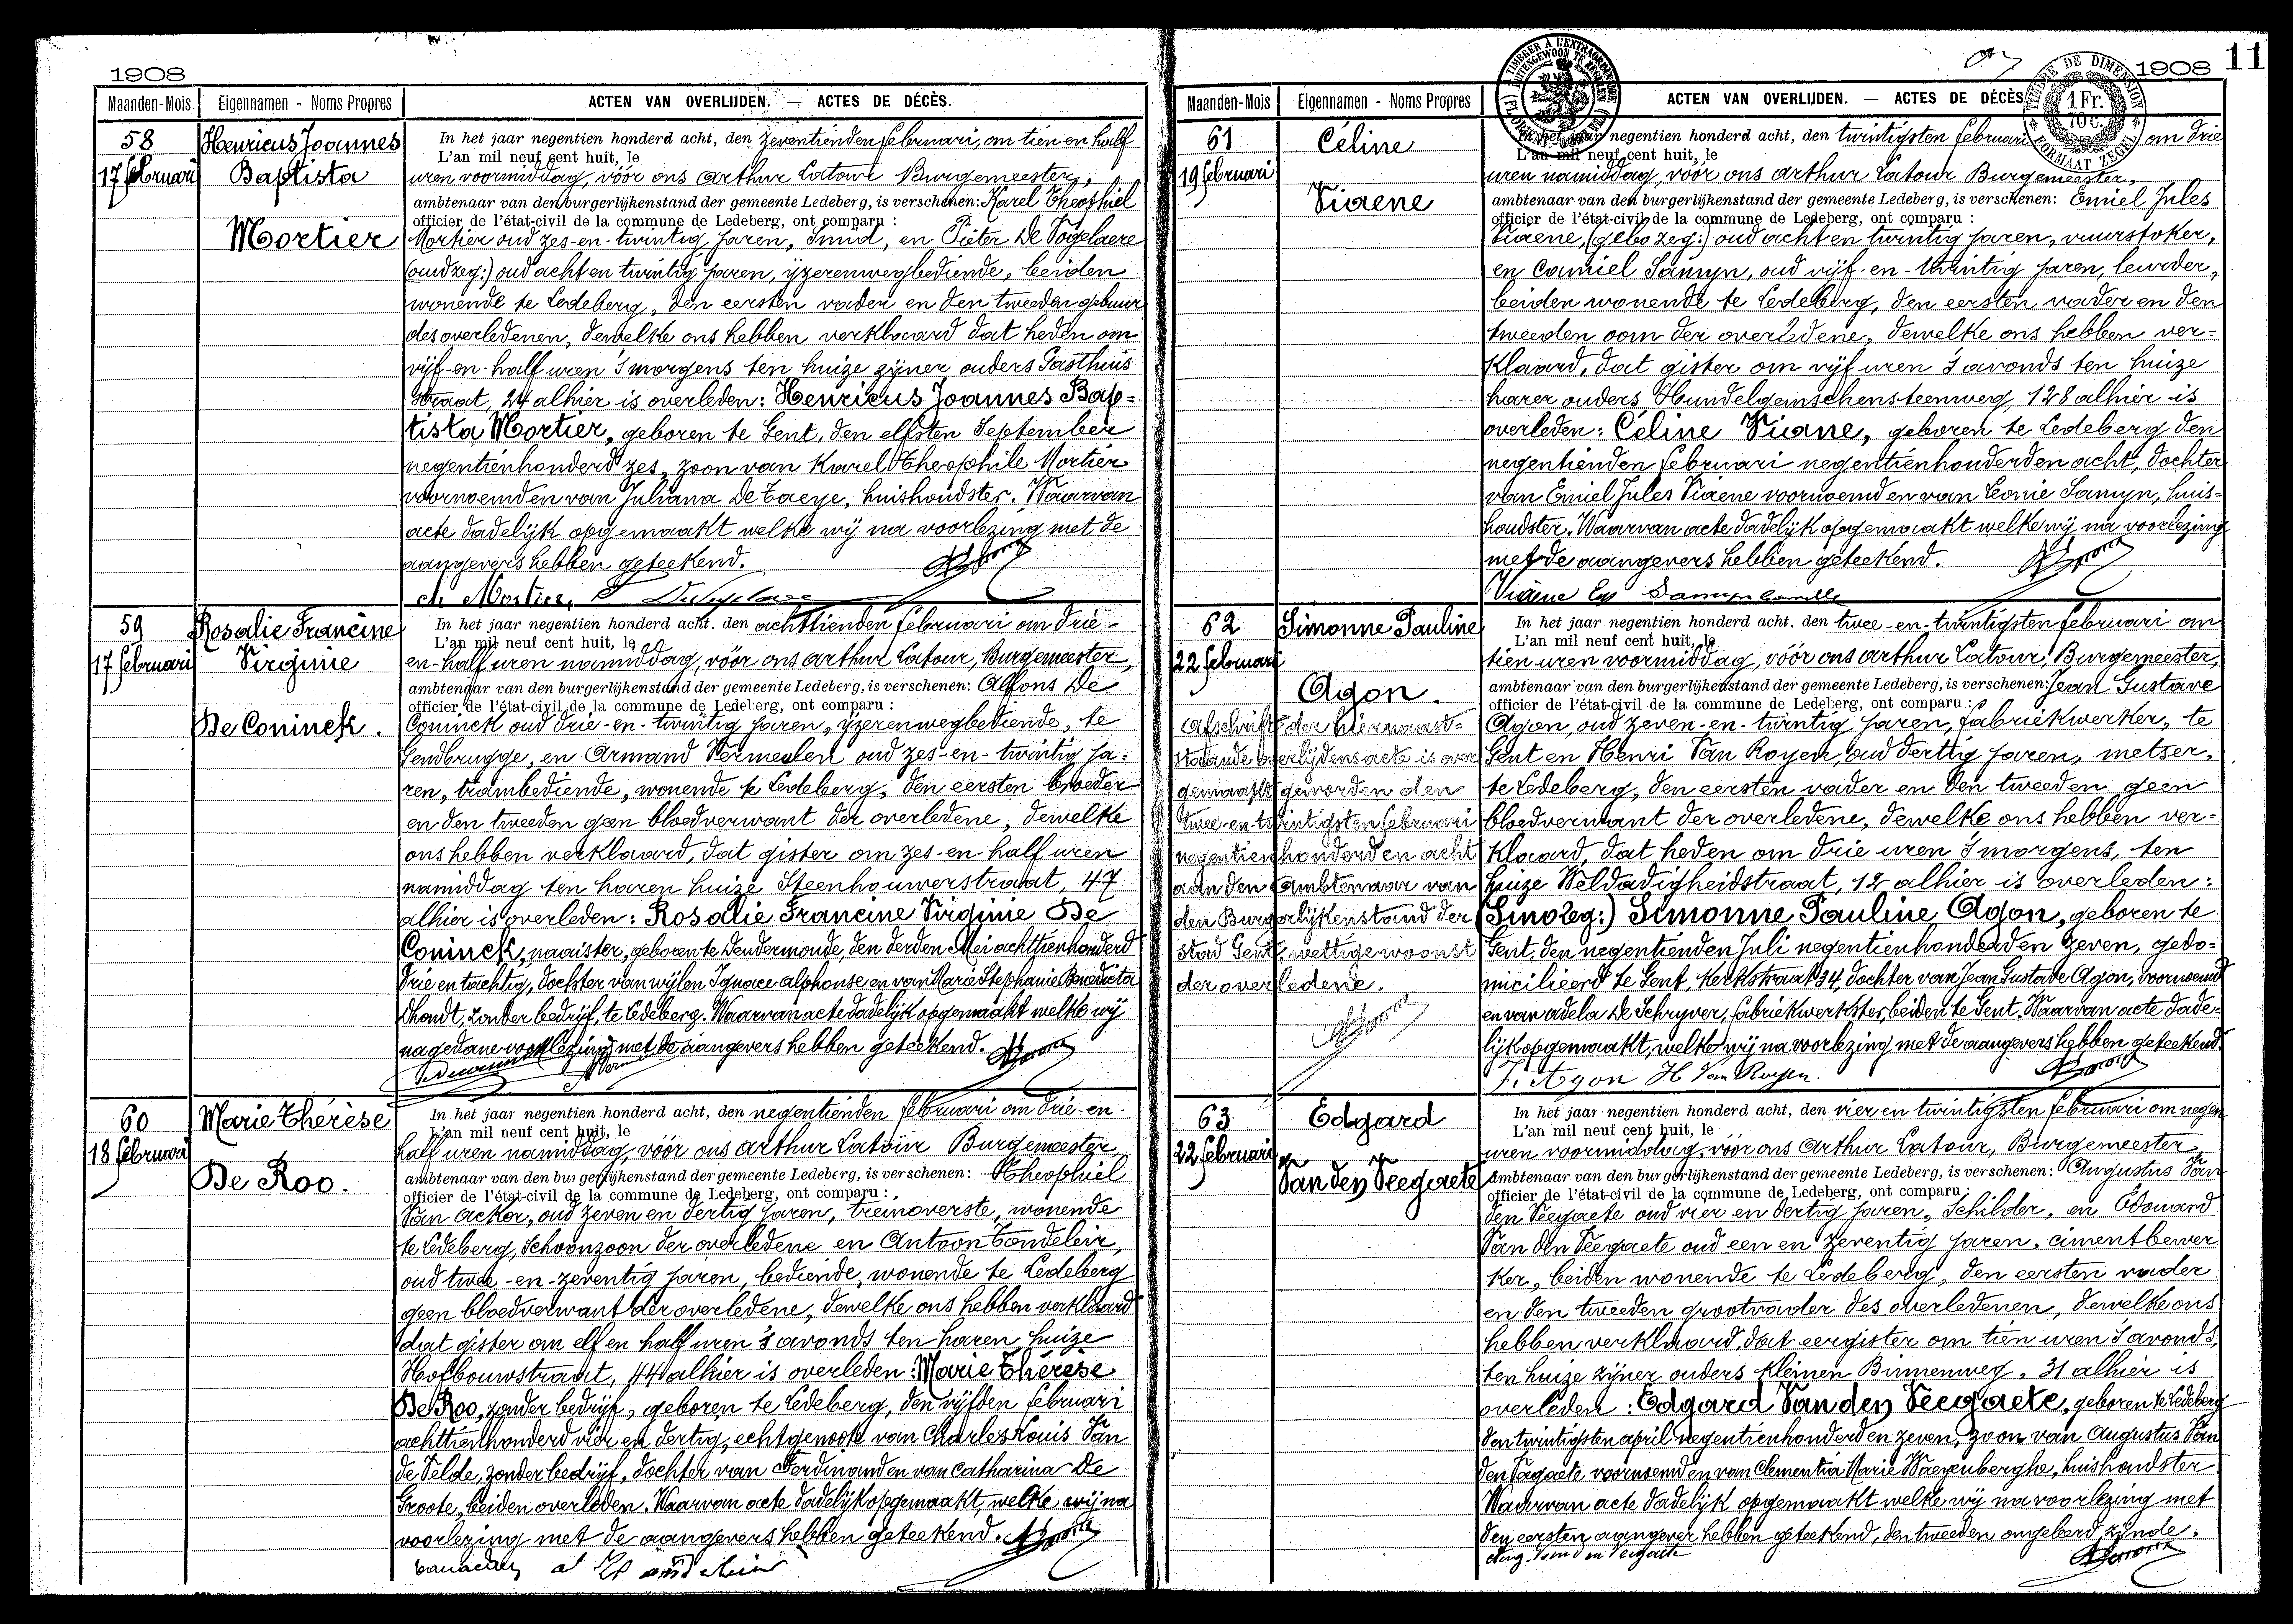 1908
Maanden-Mois
Eigennamen - Noms Propres
ACTEN VAN OVERLIJDEN. — ACTES DE DÉCÈS.
58
17 februari
Henricus Joannes
Baptista
Mortier
In het jaar negentien honderd acht, den zeventienden februari, om tien en half
L'an mil neuf cent huit, le
uren voormiddag, vóór ons Arthur Latour Burgemeester,
ambtenaar van den burgerlijkenstand der gemeente Ledeberg, is verschenen: Karel Theophiel
officier de l'état-civil de la commune de Ledeberg, ont comparu :
Mortier oud zes-en-twintig jaren, Smid, en Pieter De Vogelaere
(oud zeg:) oud acht en twintig jaren, ijzerenwegbediende, beiden
wonende te Ledeberg, den eersten vader en den tweeden gebuur
des overledenen, dewelke ons hebben verklaard dat heden om
vijf-en-half uren 's morgens ten huize zijner ouders Gasthuis
straat, 24 alhier is overleden: Henricus Joannes Bap=
tista Mortier, geboren te Gent, den elfsten September
negentienhonderd zes, zoon van Karel Theophile Mortier
voornoemd en van Juliana De Taeye, huishoudster. Waarvan
acte dadelijk opgemaakt welke wij na voorlezing met de
aangevers hebben geteekend.
ch Mortier,
59
17 februari
Rosalie Francine
Virginie
De Coninck.
In het jaar negentien honderd acht, den achttienden februari om drie-
L'an mil neuf cent huit, le
en-half uren namiddag, vóór ons Arthur Latour, Burgemeester,
ambtenaar van den burgerlijkenstand der gemeente Ledeberg, is verschenen: Alfons De
officier de l'état-civil de la commune de Ledeberg, ont comparu :
Coninck oud drie-en-twintig jaren, ijzerenwegbediende, te
Gendbrugge, en Armand Vermeulen oud zes-en-twintig ja-
ren, trambediende, wonende te Ledeberg, den eersten broeder
en den tweeden geen bloedverwant der overledene, dewelke
ons hebben verklaard, dat gister om zes-en-half uren
namiddag ten haren huize Steenhouwerstraat, 47
alhier is overleden: Rosalie Francine Virginie De
Coninck, naaister, geboren te Dendermonde, den derden Mei achttienhonderd
drie en tachtig, dochter van wijlen Ignace Alphonse en van Marie Stephanie Benedicta
Dhondt, zonder bedrijf, te Ledeberg. Waarvan acte dadelijk opgemaakt welke wij
na gedane voorlezing met de aangevers hebben geteekend.
60
18 februari
Marie Thérèse
De Roo.
In het jaar negentien honderd acht, den negentienden februari om drie-en-
L'an mil neuf cent huit, le
half uren namiddag, vóór ons Arthur Latour Burgemeester
ambtenaar van den burgerlijkenstand der gemeente Ledeberg, is verschenen: Theophiel
officier de l'état-civil de la commune de Ledeberg, ont comparu :
Van Acker, oud zeven en dertig jaren, treinoverste, wonende
te Ledeberg, Schoonzoon der overledene en Antoon Tandeleir,
oud twee-en-zeventig jaren, bediende, wonende te Ledeberg
geen bloedverwant der overledene, dewelke ons hebben verklaard
dat gister om elf en half uren 's avonds ten haren huize
Hofbouwstraat, 44 alhier is overleden: Marie Thérèse
De Roo, zonder bedrijf, geboren te Ledeberg, den vijfden februari
achttienhonderd vier en dertig, echtgenoote van Charles Louis Van
de Velde, zonder bedrijf, dochter van Ferdinand en van Catharina De
Groote, beiden overleden. Waarvan acte dadelijk opgemaakt, welke wij na
voorlezing met de aangevers hebben geteekend.
1908
11
TIMBRE DE DIMENSION
1 Fr.
70 C.
FORMAAT ZEGEL
Maanden-Mois
Eigennamen - Noms Propres
ACTEN VAN OVERLIJDEN. — ACTES DE DÉCÈS
61
19 februari
Céline
Viaene
In het jaar negentien honderd acht, den twintigsten februari om drie
L'an mil neuf cent huit, le
uren namiddag, vóór ons Arthur Latour Burgemeester,
ambtenaar van den burgerlijkenstand der gemeente Ledeberg, is verschenen: Emiel Jules
officier de l'état-civil de la commune de Ledeberg, ont comparu :
Viaene, oud acht en twintig jaren, vuurstoker,
en Camiel Samyn, oud vijf-en-twintig jaren, leurder,
beiden wonende te Ledeberg, den eersten vader en den
tweeden oom der overledene, dewelke ons hebben ver=
klaard, dat gister om vijf uren 's avonds ten huize
harer ouders Hundelgemschensteenweg, 128 alhier is
overleden: Céline Viane, geboren te Ledeberg den
negentienden februari negentienhonderden acht, dochter
van Emiel Jules Viaene voornoemd en van Leonie Samyn, huis=
houdster. Waarvan acte dadelijk opgemaakt welke wij na voorlezing
met de aangevers hebben geteekend.
Viaene Em Samyn Camille
62
22 februari
Simonne Pauline
Agon.
Afschrift der hiernaast=
staande overlijdensacte is over
gemaakt geworden den
twee-en-twintigsten februari
negentienhonderd en acht
aan den Ambtenaar van
den Burgerlijkenstand der
stad Gent, wettige woonst
der overledene.
In het jaar negentien honderd acht, den twee-en-twintigsten februari om
L'an mil neuf cent huit, le
tien uren voormiddag, vóór ons Arthur Latour, Burgemeester,
ambtenaar van den burgerlijkenstand der gemeente Ledeberg, is verschenen: Jean Gustave
officier de l'état-civil de la commune de Ledeberg, ont comparu :
Agon, oud zeven-en-twintig jaren, fabriekwerker, te
Gent en Henri Van Royen, oud dertig jaren, metser,
te Ledeberg, den eersten vader en den tweeden geen
bloedverwant der overledene, dewelke ons hebben ver=
klaard, dat heden om drie uren 's morgens, ten
huize Weldadigheidstraat, 12 alhier is overleden:
Simonne Pauline Agon, geboren te
Gent, den negentienden Juli negentienhonderden zeven, gedo=
micilieerd te Gent, Kerkstraat 34, dochter van Jean Gustave Agon, voornoemd
en van Adela De Schryver, fabriekwerkster, beiden te Gent. Waarvan acte dade=
lijk opgemaakt, welke wij na voorlezing met de aangevers hebben geteekend.
Agon H Van Royen.
63
22 februari
Edgard
Van den Veegaete
In het jaar negentien honderd acht, den vier en twintigsten februari om negen
L'an mil neuf cent huit, le
uren voormiddag, vóór ons Arthur Latour, Burgemeester
ambtenaar van den burgerlijkenstand der gemeente Ledeberg, is verschenen: Augustus Van
officier de l'état-civil de la commune de Ledeberg, ont comparu :
den Veegaete oud vier en dertig jaren, Schilder, en Edouard
Van den Veegaete oud een en zeventig jaren, cimentbewer
ker, beiden wonende te Ledeberg, den eersten vader
en den tweeden grootvader des overledenen, dewelke ons
hebben verklaard, dat eergister om tien uren 's avonds,
ten huize zijner ouders Kleinen Binnenweg, 31 alhier is
overleden: Edgard Van den Veegaete, geboren te Ledeberg
den twintigsten april negentienhonderden zeven, zoon van Augustus Van
den Veegaete voornoemd en van Clementia Marie Waeyenberghe, huishoudster
Waarvan acte dadelijk opgemaakt welke wij na voorlezing met
den eersten aangever hebben geteekend, den tweeden ongeleerd zijnde.